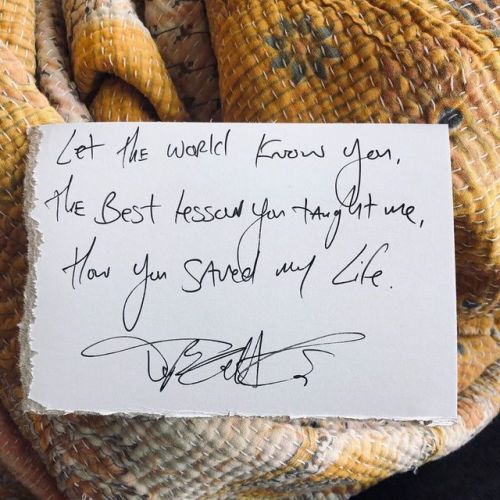 Let the world know you,
the Best Lesson you taught me,
How you saved my Life.